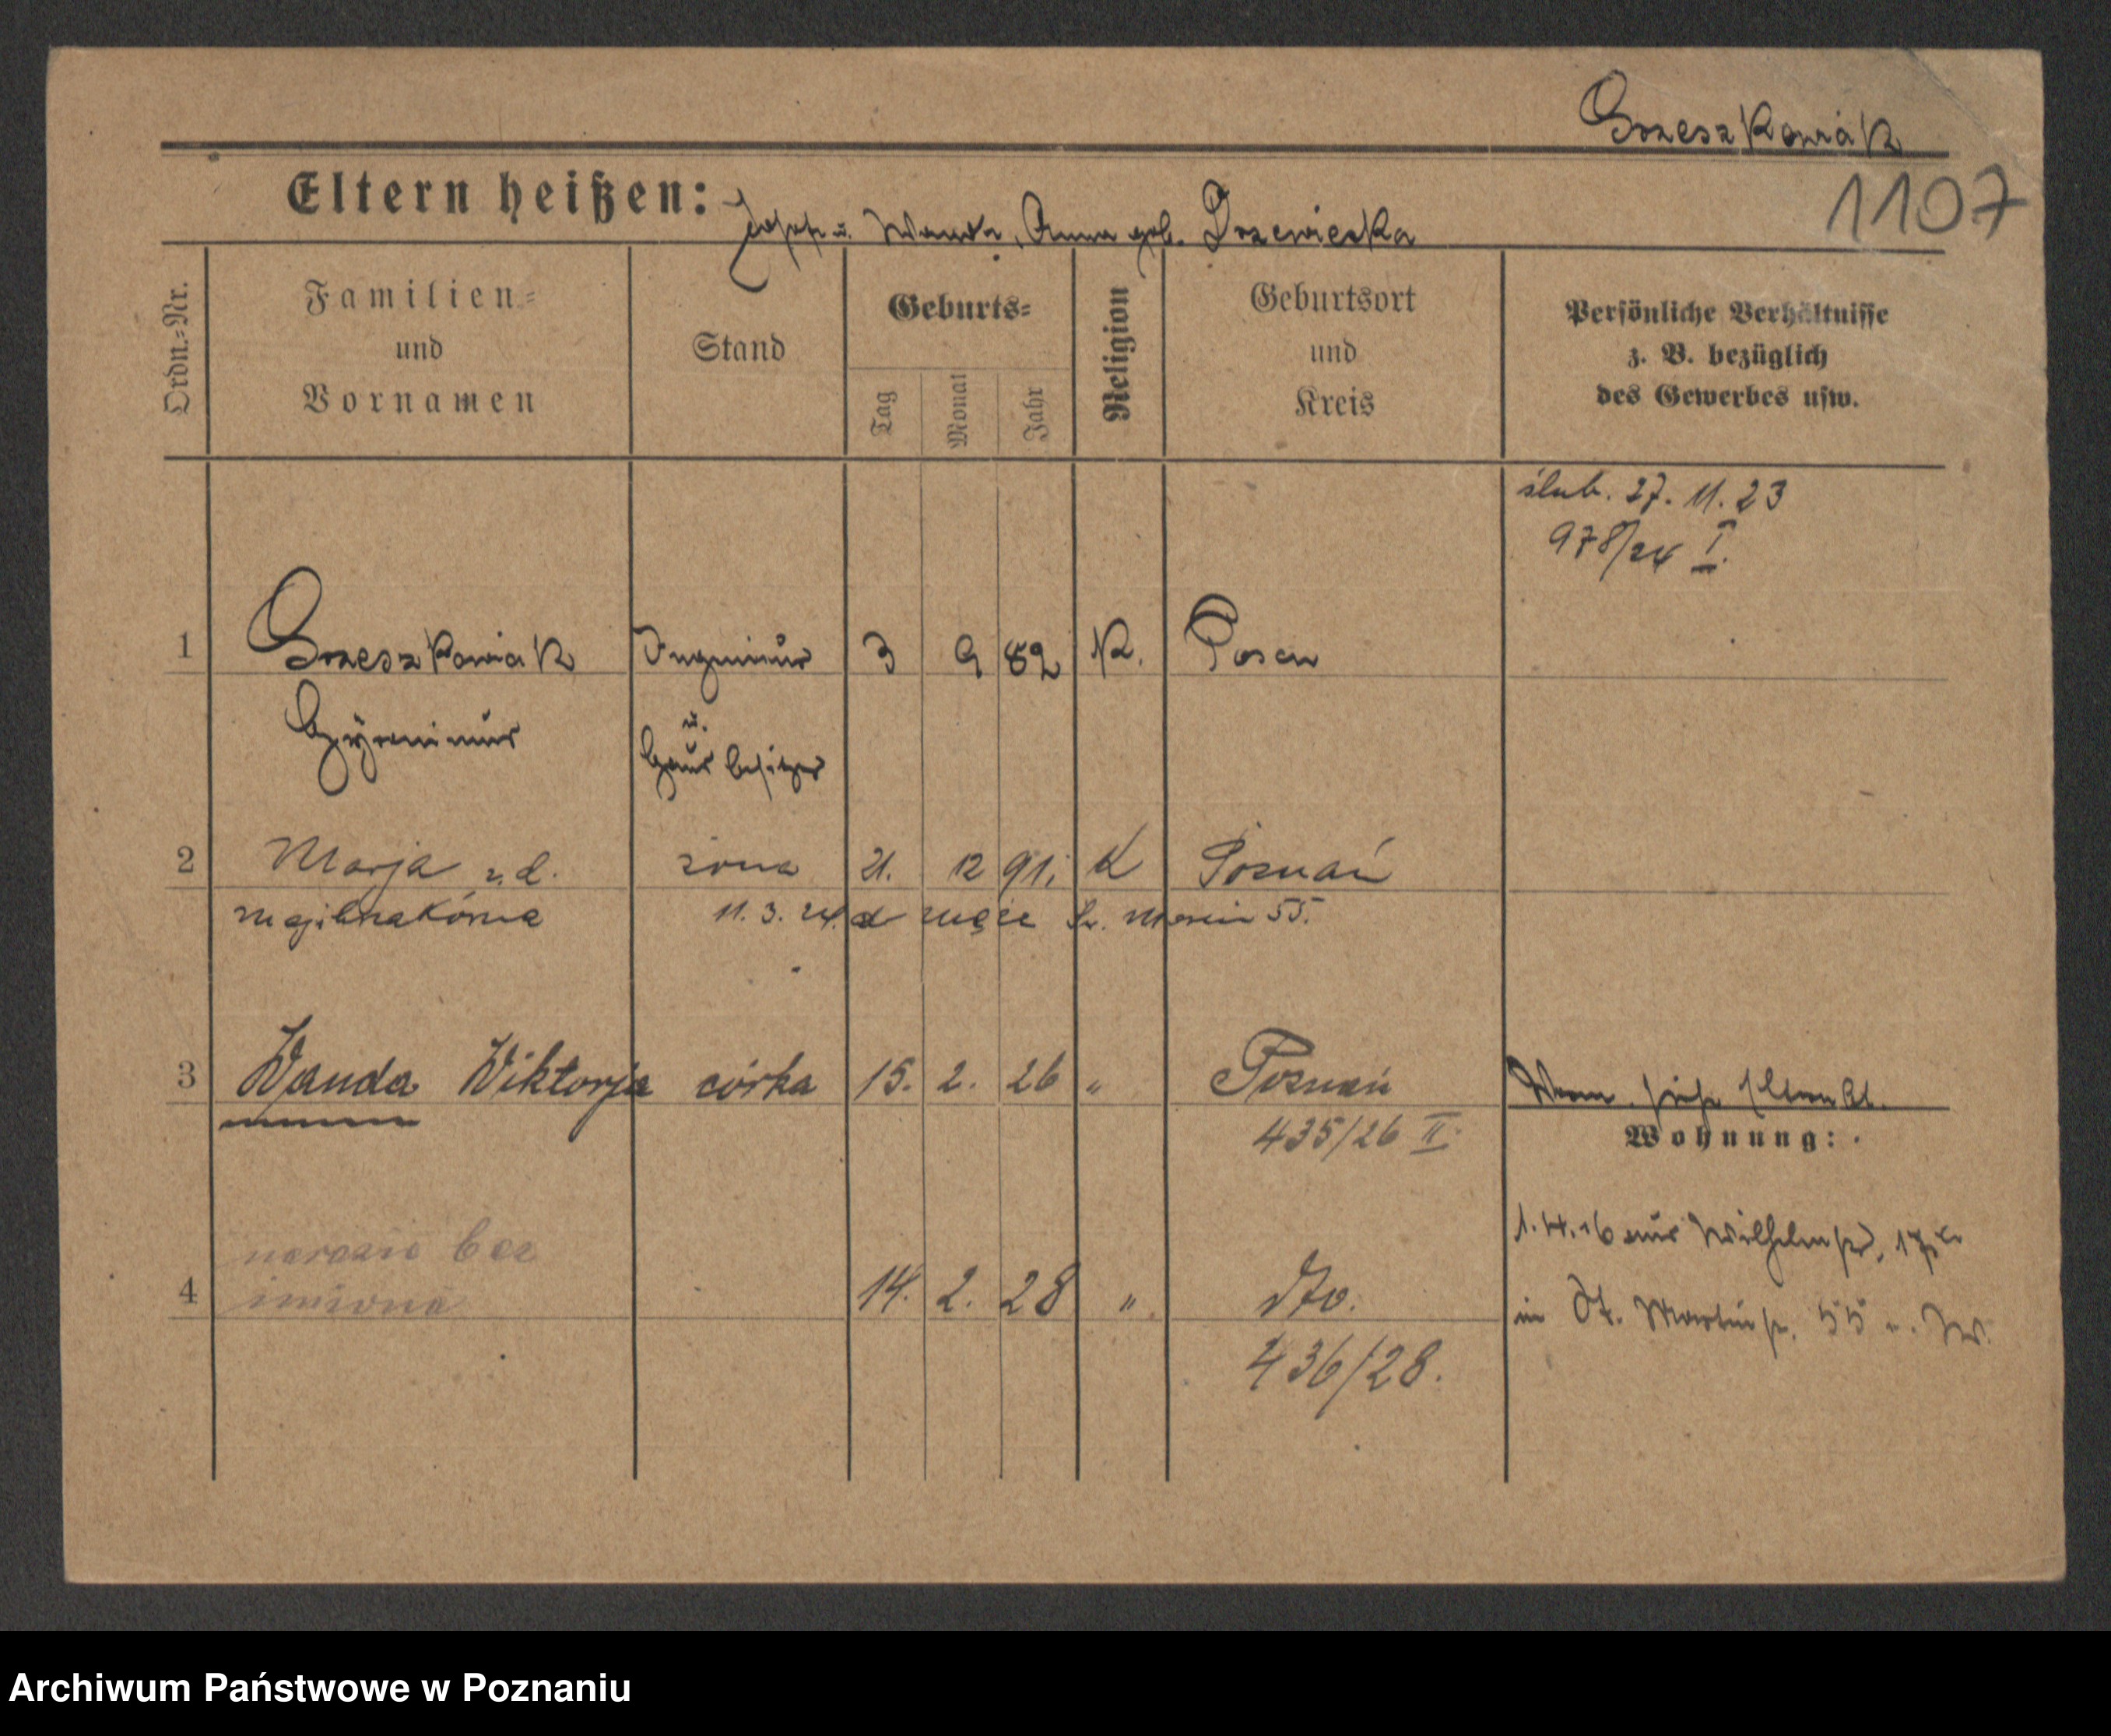 Grzeszkowiak
1107
Eltern heißen: Josef u. Wanda, Anna geb. Drzewiecka
Ordn.=Nr.
Familien=
und
Vornamen
Stand
Geburts=
Tag
Monat
Jahr
Religion
Geburtsort
und
Kreis
Persönliche Verhältnisse
z. B. bezüglich
des Gewerbes usw.
ślub. 27. 11. 23
978/24 I.
1 Grzeszkowiak Ingenieur 3 9 82 K. Posen
u.
Hausbesitzer
2 Marja z d. żona 21. 12 91. K Poznań
11. 3. 24. męża Św. Marcin 55.
3 Wanda Wiktorja córka 15. 2. 26 " Poznań
435/26 II.
Wohnung:
narazie bez
4 imiona 14. 2. 28 " dto.
436/28.
1. 4. 16 aus Wilhelmstr. 17
in St. Martinstr. 55
Archiwum Państwowe w Poznaniu